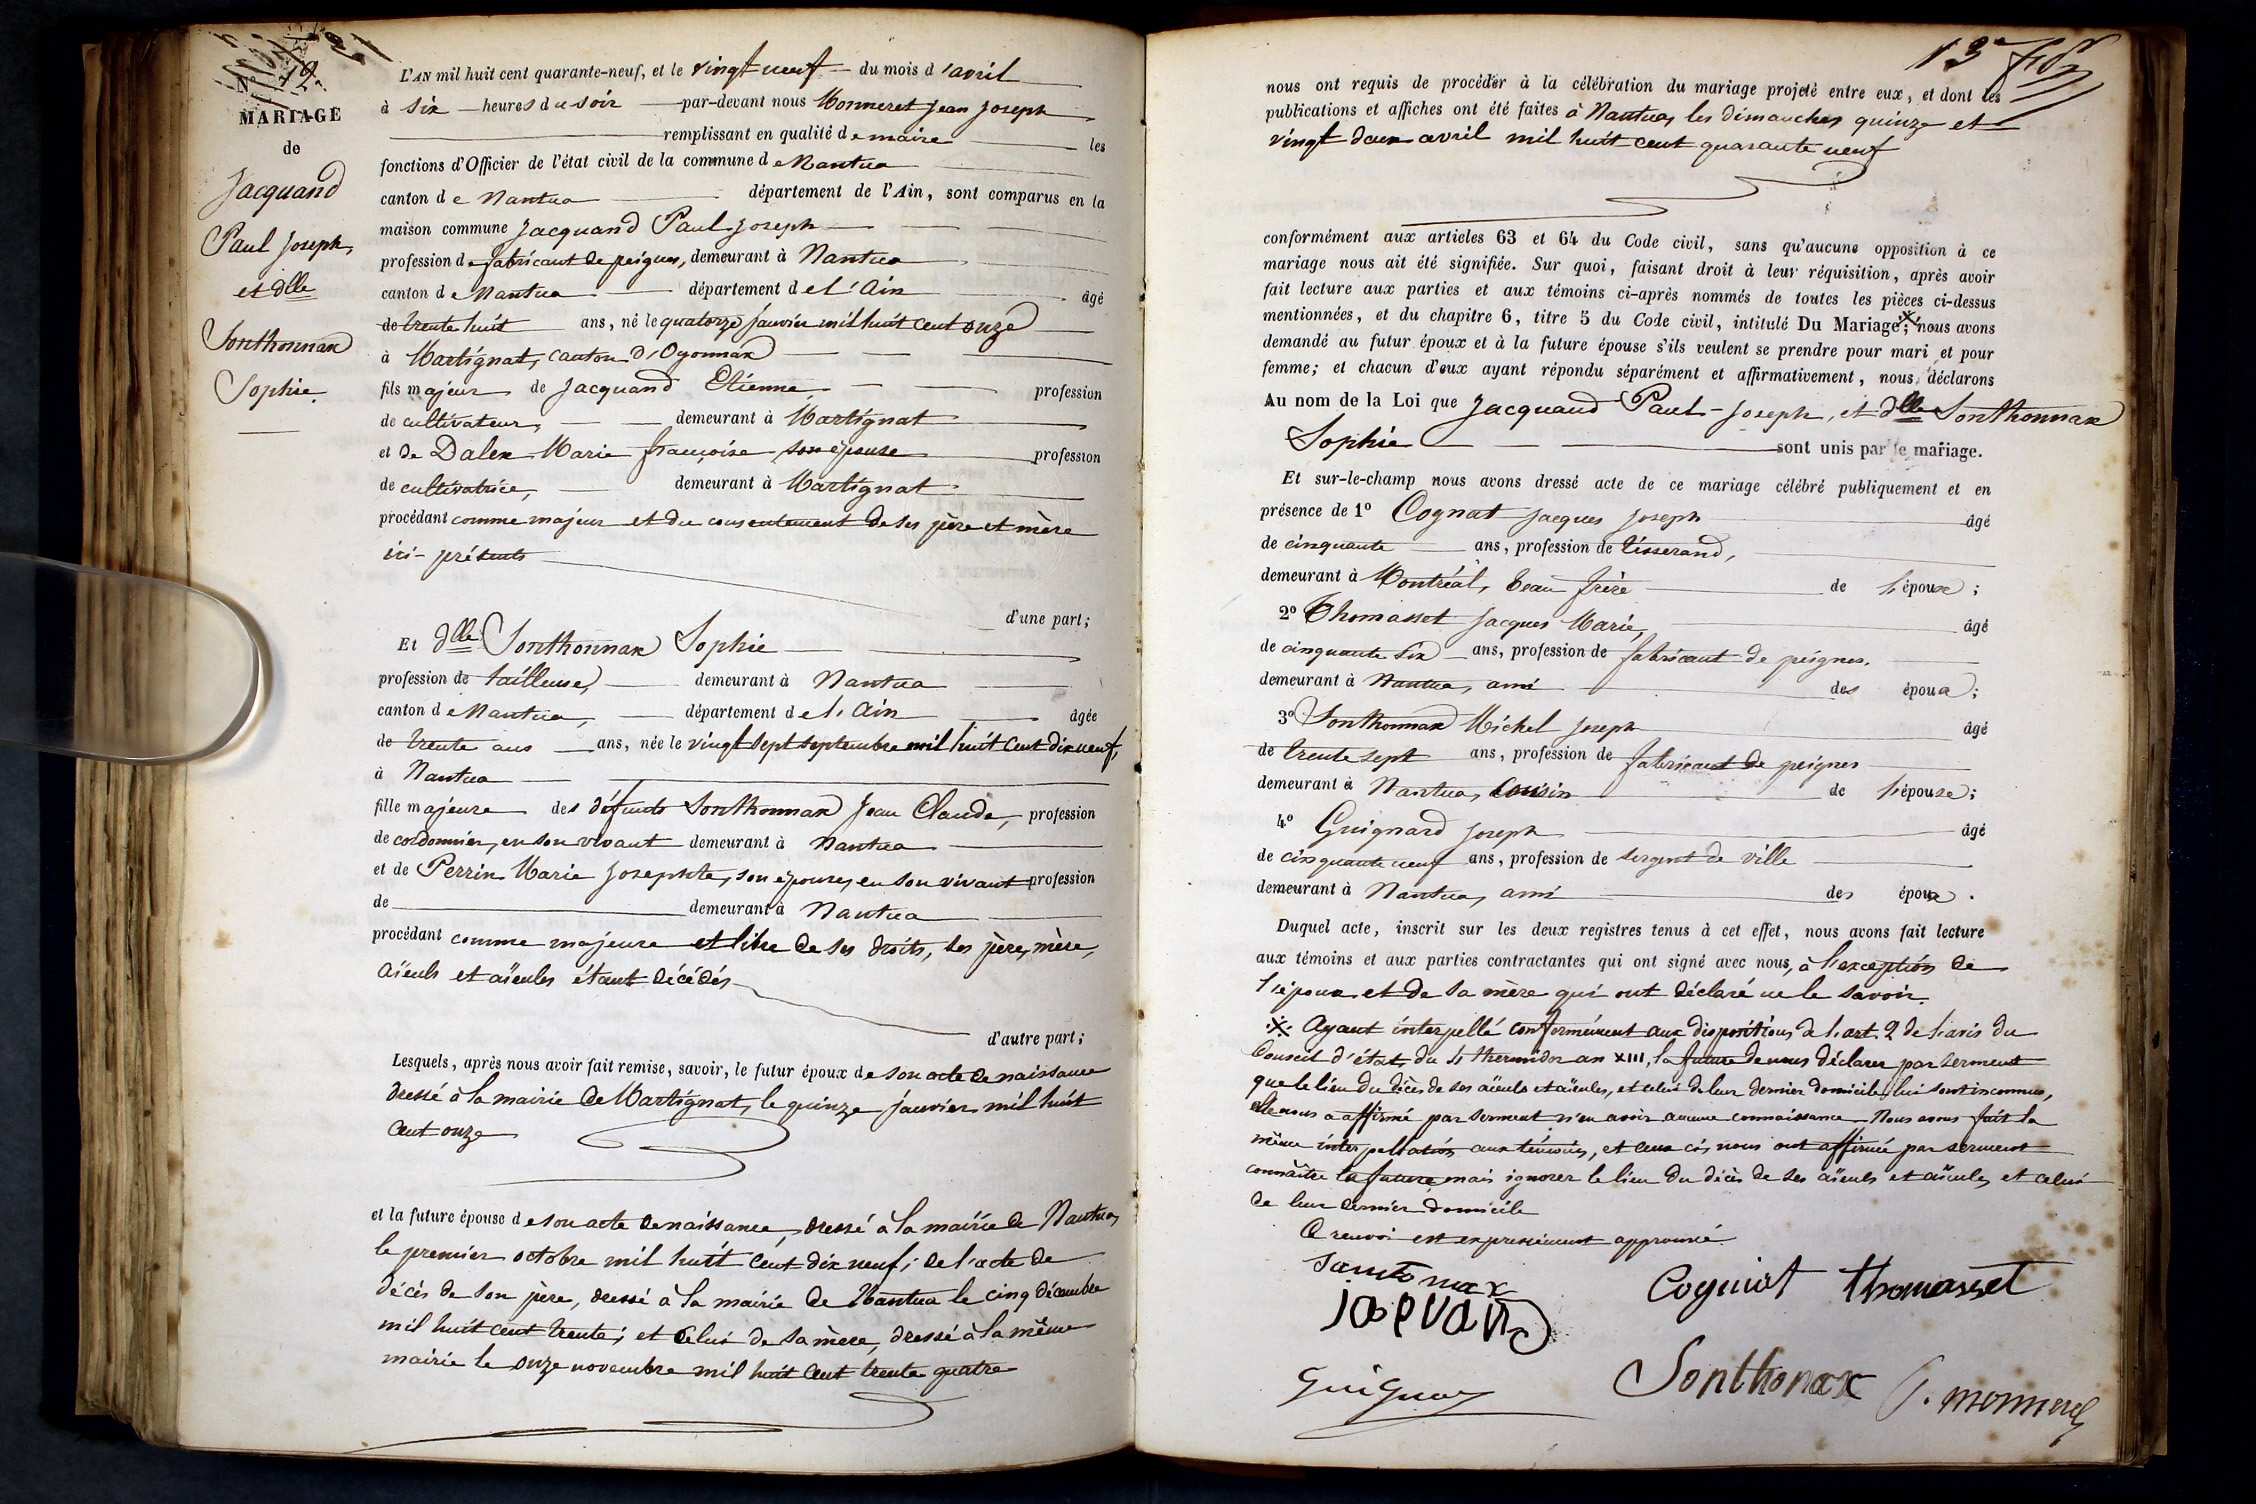 N° 19.
MARIAGE
de
Jacquand
Paul Joseph,
et dlle
Sonthonnax
Sophie.
L'AN mil huit cent quarante-neuf, et le vingt neuf du mois d'avril
à six heures du soir par-devant nous Monneret Jean Joseph
remplissant en qualité de maire les
fonctions d'Officier de l'état civil de la commune de Nantua
canton de Nantua département de l'Ain, sont comparus en la
maison commune Jacquand Paul Joseph
profession de fabricant de peignes, demeurant à Nantua
canton de Nantua département de l'Ain âgé
de trente huit ans, né le quatorze janvier mil huit cent onze
à Martignat, canton d'Oyonnax
fils majeur de Jacquand Etienne, profession
de cultivateur, demeurant à Martignat
et de Dalex Marie françoise son épouse profession
de cultivatrice, demeurant à Martignat
procédant comme majeur et du consentement de ses père et mère
ici-présents
d'une part;
Et dlle Sonthonnax Sophie
profession de tailleuse, demeurant à Nantua
canton de Nantua, département de l'Ain âgée
de trente ans ans, née le vingt sept septembre mil huit cent dix neuf,
à Nantua
fille majeure des défunts Sonthonnax Jean Claude, profession
de cordonnier, en son vivant demeurant à Nantua
et de Perrin Marie Josephte, son épouse, en son vivant profession
de demeurant à Nantua
procédant comme majeure et libre de ses droits, ses père, mère,
aïeuls et aïeules étant décédés
d'autre part;
Lesquels, après nous avoir fait remise, savoir, le futur époux de son acte de naissance
dressé à la mairie de Martignat, le quinze janvier mil huit
cent onze
et la future épouse de son acte de naissance, dressé à la mairie de Nantua,
le premier octobre mil huit cent dix neuf; de l'acte de
décès de son père, dressé à la mairie de Nantua le cinq décembre
mil huit cent trente; et celui de sa mère, dressé à la même
mairie le onze novembre mil huit cent trente quatre
13e
nous ont requis de procéder à la célébration du mariage projeté entre eux, et dont les
publications et affiches ont été faites à Nantua, les dimanches quinze et
vingt deux avril mil huit cent quarante neuf
conformément aux articles 63 et 64 du Code civil, sans qu'aucune opposition à ce
mariage nous ait été signifiée. Sur quoi, faisant droit à leur réquisition, après avoir
fait lecture aux parties et aux témoins ci-après nommés de toutes les pièces ci-dessus
mentionnées, et du chapitre 6, titre 5 du Code civil, intitulé Du Mariage; ※ nous avons
demandé au futur époux et à la future épouse s'ils veulent se prendre pour mari et pour
femme; et chacun d'eux ayant répondu séparément et affirmativement, nous déclarons
Au nom de la Loi que Jacquand Paul-Joseph, et dlle Sonthonnax
Sophie sont unis par le mariage.
Et sur-le-champ nous avons dressé acte de ce mariage célébré publiquement et en
présence de 1° Cognat Jacques Joseph âgé
de cinquante ans, profession de tisserand,
demeurant à Montréal, beau frère de l'épouse;
2° Thomasset Jacques Marie, âgé
de cinquante six ans, profession de fabricant de peignes,
demeurant à Nantua, ami des époux;
3° Sonthonnax Michel Joseph âgé
de trente sept ans, profession de fabricant de peignes
demeurant à Nantua, cousin de l'épouse;
4° Guignard Joseph âgé
de cinquante neuf ans, profession de sergent de ville
demeurant à Nantua, ami des époux.
Duquel acte, inscrit sur les deux registres tenus à cet effet, nous avons fait lecture
aux témoins et aux parties contractantes qui ont signé avec nous, à l'exception de
l'époux et de sa mère qui ont déclaré ne le savoir.
※ Ayant interpellé conformément aux dispositions de l'art. 2 de l'avis du
Conseil d'état, du 4 thermidor an XIII, la future de nous déclarer par serment
que le lieu du décès de ses aïeuls et aïeules, et celui de leur dernier domicile, lui sont inconnus,
elle nous a affirmé par serment n'en avoir aucune connaissance. Nous avons fait la
même interpellation aux témoins, et ceux-ci nous ont affirmé par serment
connaître la future, mais ignorer le lieu du décès de ses aïeuls et aïeules, et celui
de leur dernier domicile
Ce renvoi est expressément approuvé
santonax
Cogniat
thomasset
jaqvand
Sonthonax
J. monneret